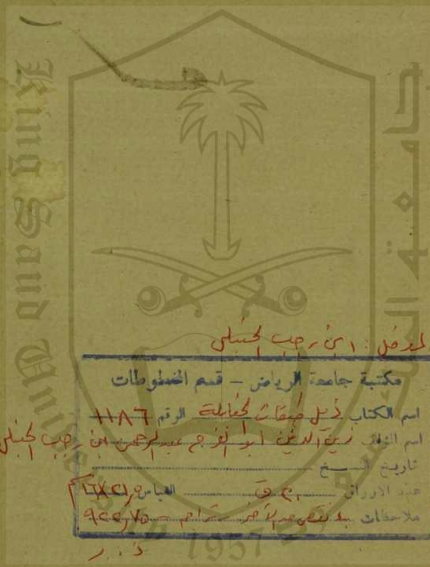 King Saud University
جامعة الملك سعود
المدخل : ابن رجب الحنبلي
مكتبة جامعة الرياض – قسم المخطوطات
اسم الكتاب ذيل طبقات الحنابلة الرقم ١١٨٦
اسم المؤلف زين الدين ابو الفرج عبد الرحمن ابن رجب الحنبلي
تاريخ النسخ
عدد الاوراق ٢٠ ق القياس
ملاحظات تراجم
1957